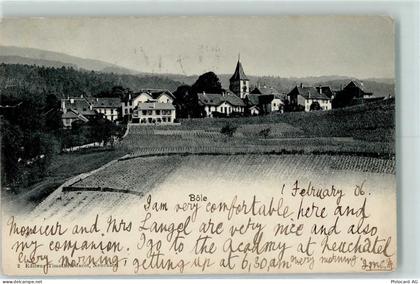 Bôle
1 February 06.
I am very comfortable, here and
Monsieur and Mrs Langel are very nice and also
my companion. I go to the Academy at Neuchâtel
every morning, getting up at 6,30 am every morning.